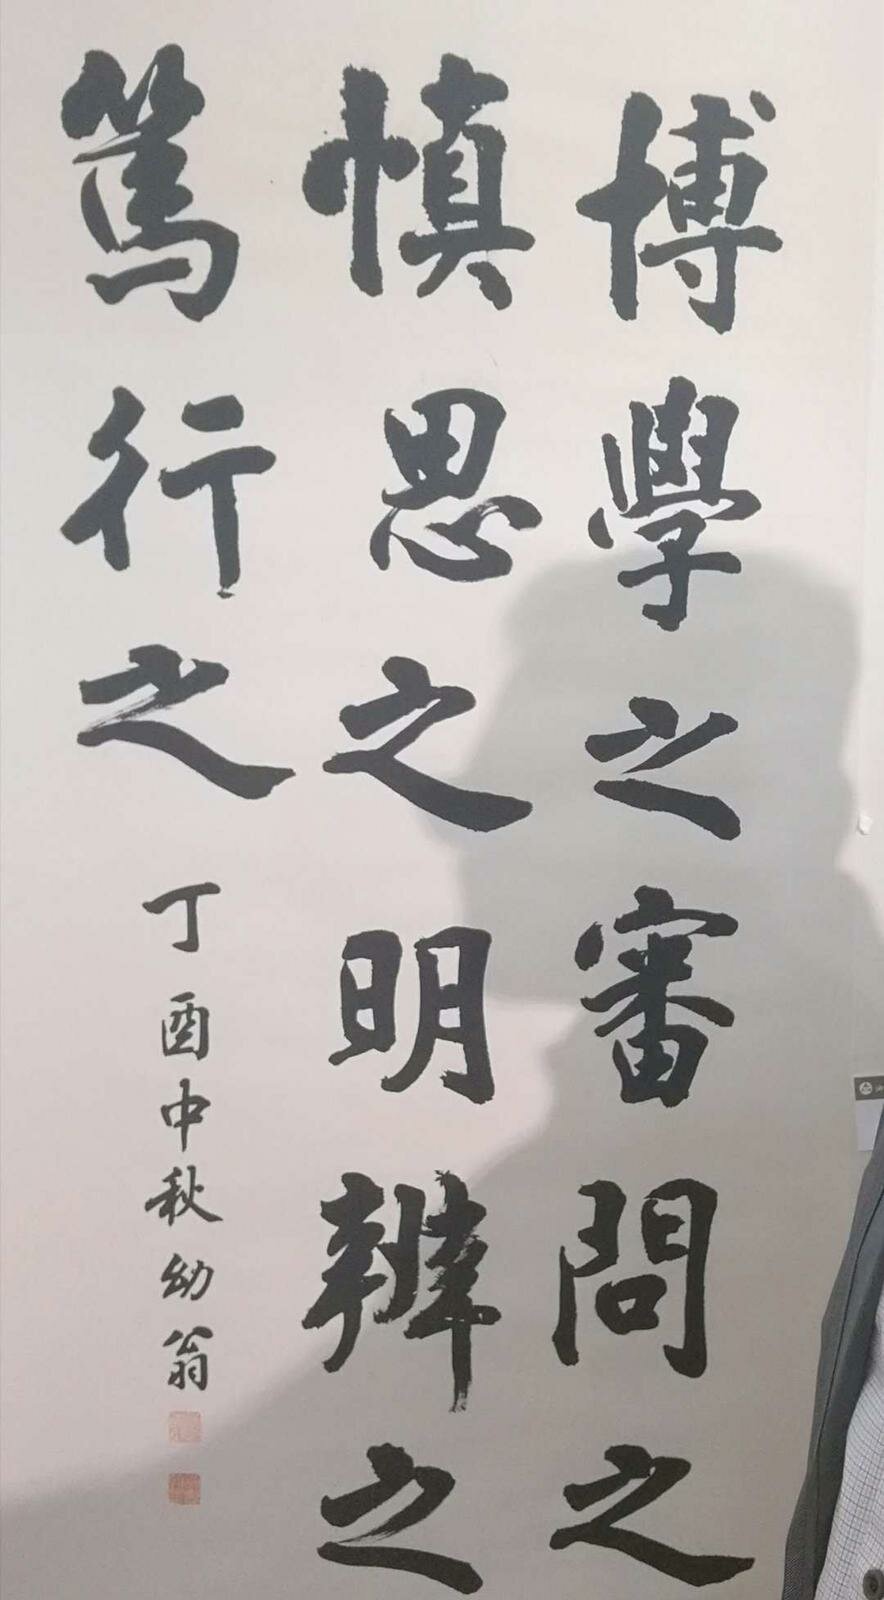 博學之審問之
慎思之明辨之
篤行之
丁酉中秋幼翁